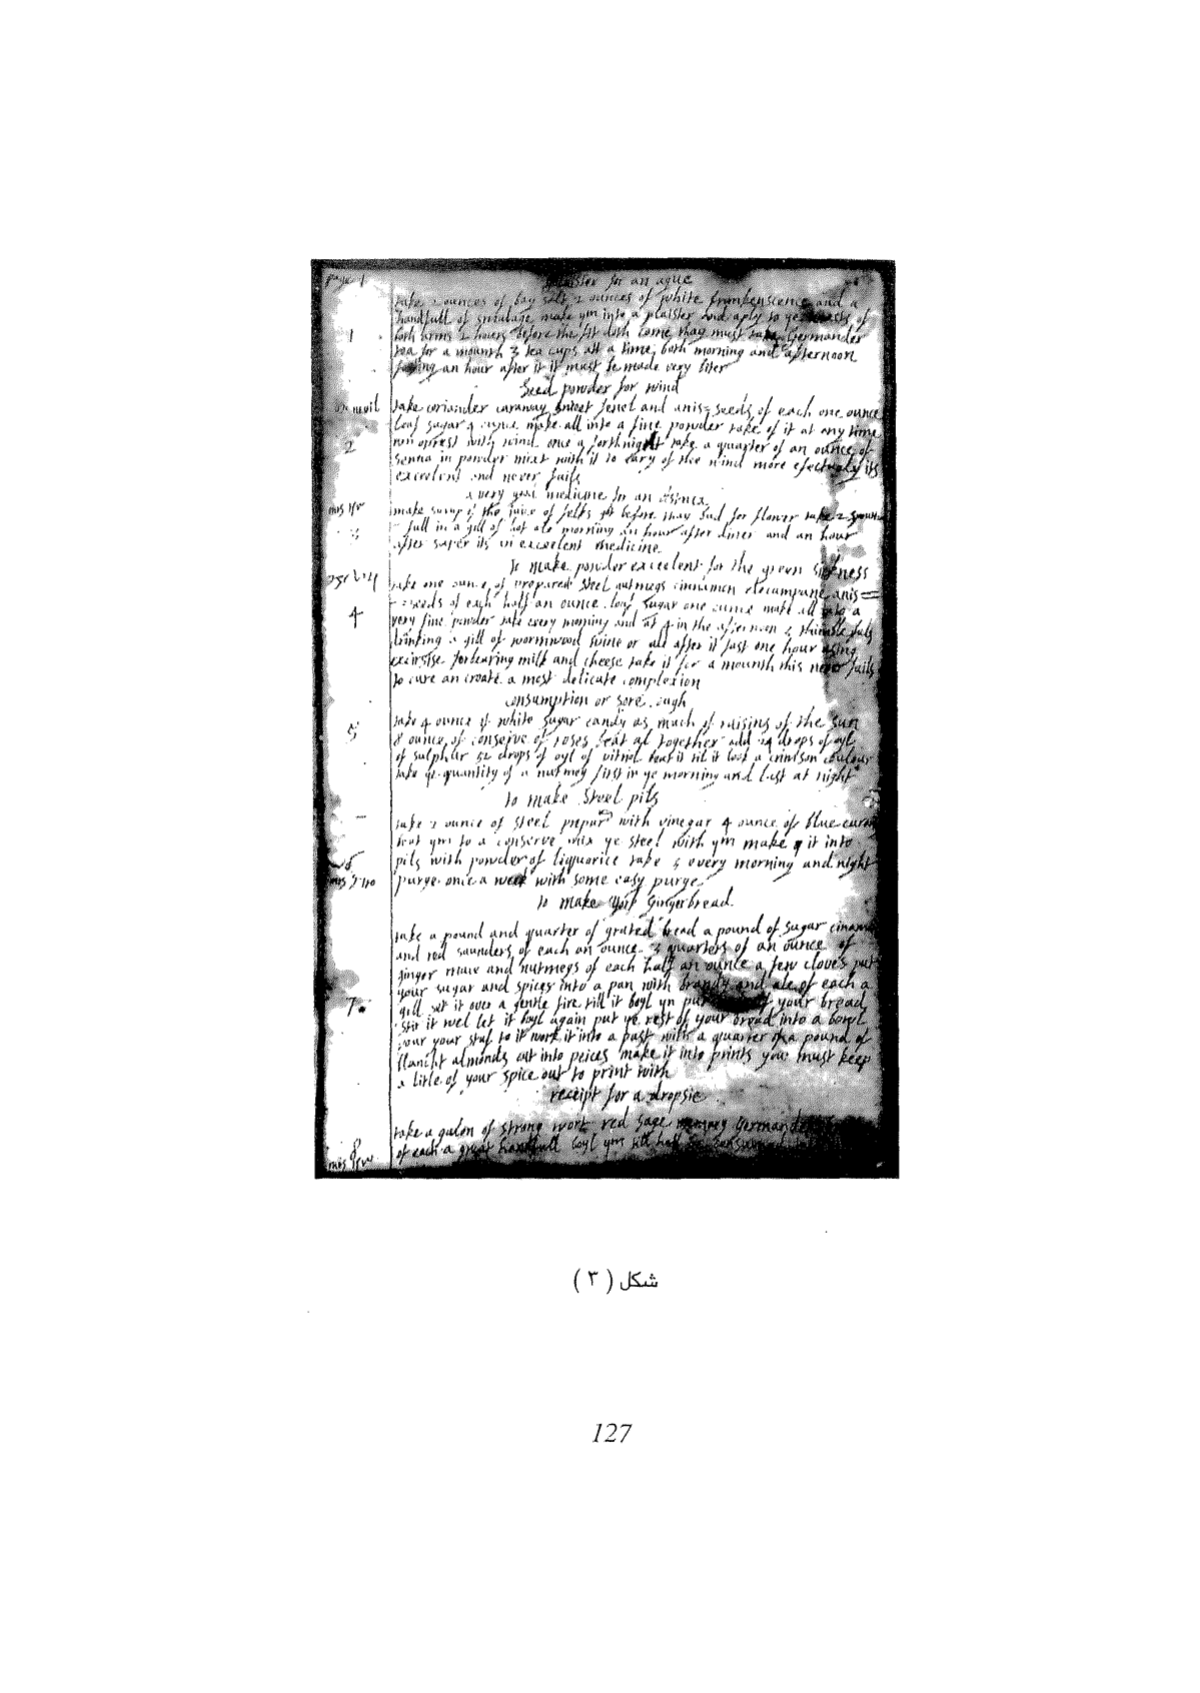 page 1
plaister for an ague
take 2 ounces of bay salt 2 ounces of white frankenscence and a
handfull of make ym into a plaister and aply to ye of
1
both arms 2 hours before the fit doth come thay must take Germander
tea for a mounth 3 tea cups att a time, both morning and afternoon
an hour after it it must be made very biter
Seed powder for wind
take coriander caraway sweet fenel and anis=seeds of each one ounce
loaf sugar 4 ounce make all into a fine powder take of it at any time
2
oprest with wind once a forthnight take a quarter of an ounce of
Senna in powder mixt with it to cary of the wind more efectualy its
excelent and never fails
a very good medicine for an
make surup of the juice of before thay bud for flower take 2 spoons
3
full in a gill of hot ale morning an hour after diner and an hour
after super its an excelent medicine
to make powder excelent for the green sickness
take one ounce of prepared steel nutmegs cinnamon elecampane anis=
=seeds of each half an ounce loaf sugar one ounce make all into a
4
very fine powder take every morning and at 4 in the afternoon
drinking a gill of wormwood wine or ale after it fast one hour using
exersise forbearing milk and cheese take it for a mounth this never fails
to cure an create a most delicate complexion
consumption or sore cough
5
take 4 ounce of white sugar candy as much of raising of the sun
8 ounce of conserve of roses beat al together add 24 drops of oyl
of sulphur 52 drops of oyl of vitriol beat it til it look a crimson coulour
take ye quantity of a nutmeg first in ye morning and last at night
to make Steel pils
take 2 ounce of steel prepard with vinegar 4 ounce of blue
beat ym to a conserve mix ye steel with ym make it into
6
pils with powder of liquorice take 5 every morning and night
purge once a week with some easy purge
to make Gingerbread.
take a pound and quarter of grated bread a pound of sugar
and red saunders of each an ounce 3 quarters of an ounce of
ginger mace and nutmegs of each half an ounce a few cloves put
your sugar and spices into a pan with brandy and ale of each a
7
gill set it over a gentle fire till it boyl yn put of your bread
stir it wel let it boyl again put ye rest of your bread into a bowl
pour your stuf to it work it into a past with a quarter of a pound of
blancht almonds cut into peices make it into prints you must keep
a litle of your spice out to print with
receipt for a dropsie
take a galon of strong wort red sage Germander
8
of each a great handfull boyl ym till half be consumed
شكل ( ٣ )
127